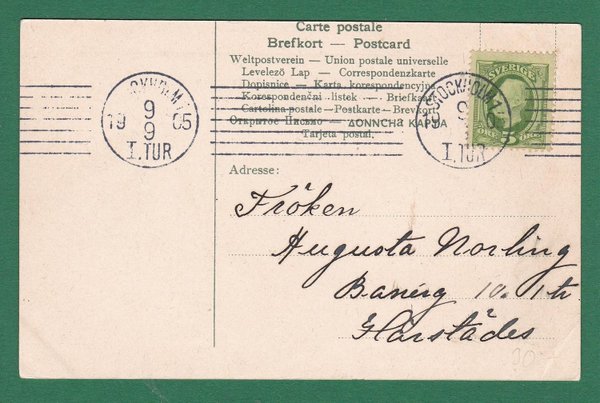 Carte postale
Brefkort — Postcard
Weltpostverein — Union postale universelle
Levelező Lap — Correspondenzkarte
Dopisnice — Karta korespondencyjna
Korespondenční listek — Briefkaart
Cartolina postale — Postkarte — Brevkort
Открытое Письмо — ΔΟΠΠCHΑ ΚΑΡΤΑ
Tarjeta postal.
SVERIGE
5
STOCKHOLM 1.
9
19 05
9
I.TUR
STOCKHOLM 1.
9
19
9
I.TUR
Adresse:
Fröken
Augusta Norling
Banérg 10. 1 tr
Härstädes